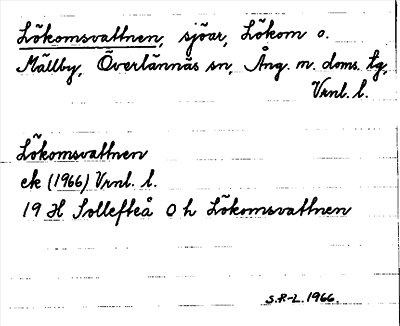 Lökomsvattnen, sjöar, Lökom o.
Mällby, Överlännäs sn, Ång. m. doms. tg,
Vrnl. l.
Lökomsvattnen
ek (1966) Vrnl. l.
19 H Sollefteå O h Lökomsvattnen
S.R-L. 1966.